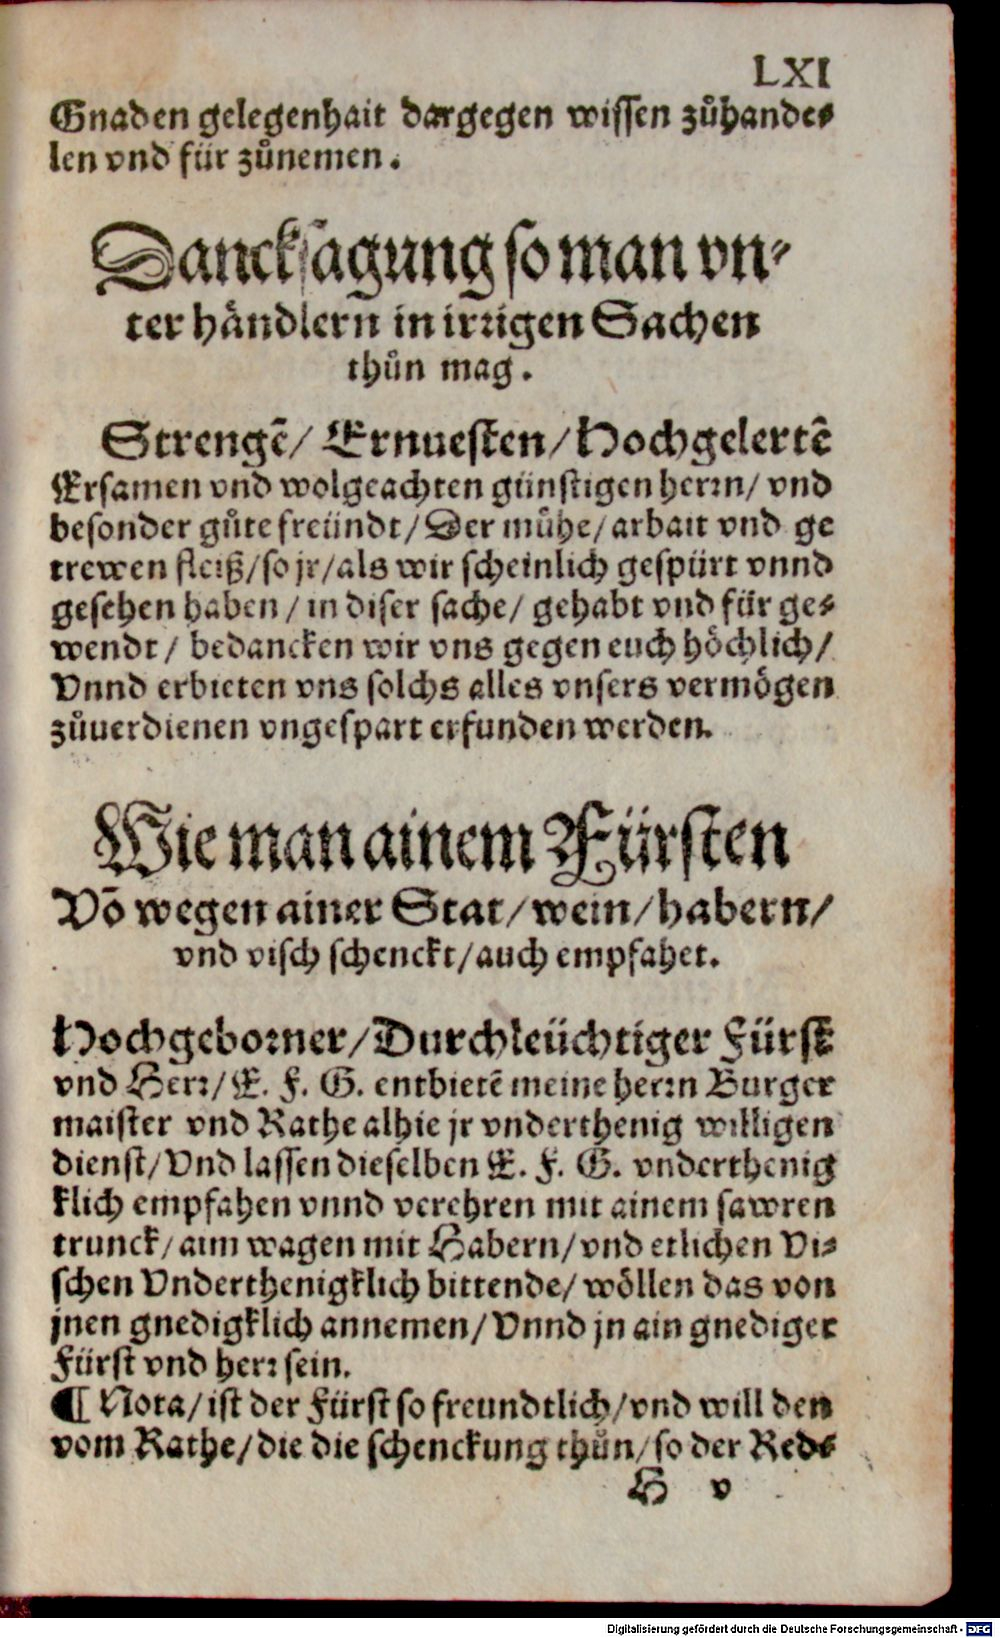 LXI
Gnaden gelegenhait dargegen wissen zůhande⸗
len vnd für zůnemen.
Dancksagung so man vn⸗
ter händlern in irrigen Sachen
thůn mag.
Strengē/ Ernuesten/ Hochgelertē
Ersamen vnd wolgeachten günstigen herrn/ vnd
besonder gůte freündt/ Der mühe/ arbait vnd ge
trewen fleiß/ so jr/ als wir scheinlich gespürt vnnd
gesehen haben/ in diser sache/ gehabt vnd für ge⸗
wendt/ bedancken wir vns gegen euch höchlich/
Vnnd erbieten vns solchs alles vnsers vermögen
zůuerdienen vngespart erfunden werden.
Wie man ainem Fürsten
Vō wegen ainer Stat/ wein/ habern/
vnd visch schenckt/ auch empfahet.
Hochgeborner/ Durchleüchtiger Fürst
vnd Herr/ E. F. G. entbietē meine herrn Burger
maister vnd Rathe alhie jr vnderthenig willigen
dienst/ Vnd lassen dieselben E. F. G. vnderthenig
klich empfahen vnnd verehren mit ainem sawren
trunck/ aim wagen mit Habern/ vnd etlichen Vi⸗
schen Vnderthenigklich bittende/ wöllen das von
jnen gnedigklich annemen/ Vnnd jn ain gnediger
Fürst vnd herr sein.
¶ Nota/ ist der Fürst so freundtlich/ vnd will den
vom Rathe/ die die schenckung thůn/ so der Red⸗
H v
Digitalisierung gefördert durch die Deutsche Forschungsgemeinschaft - DFG